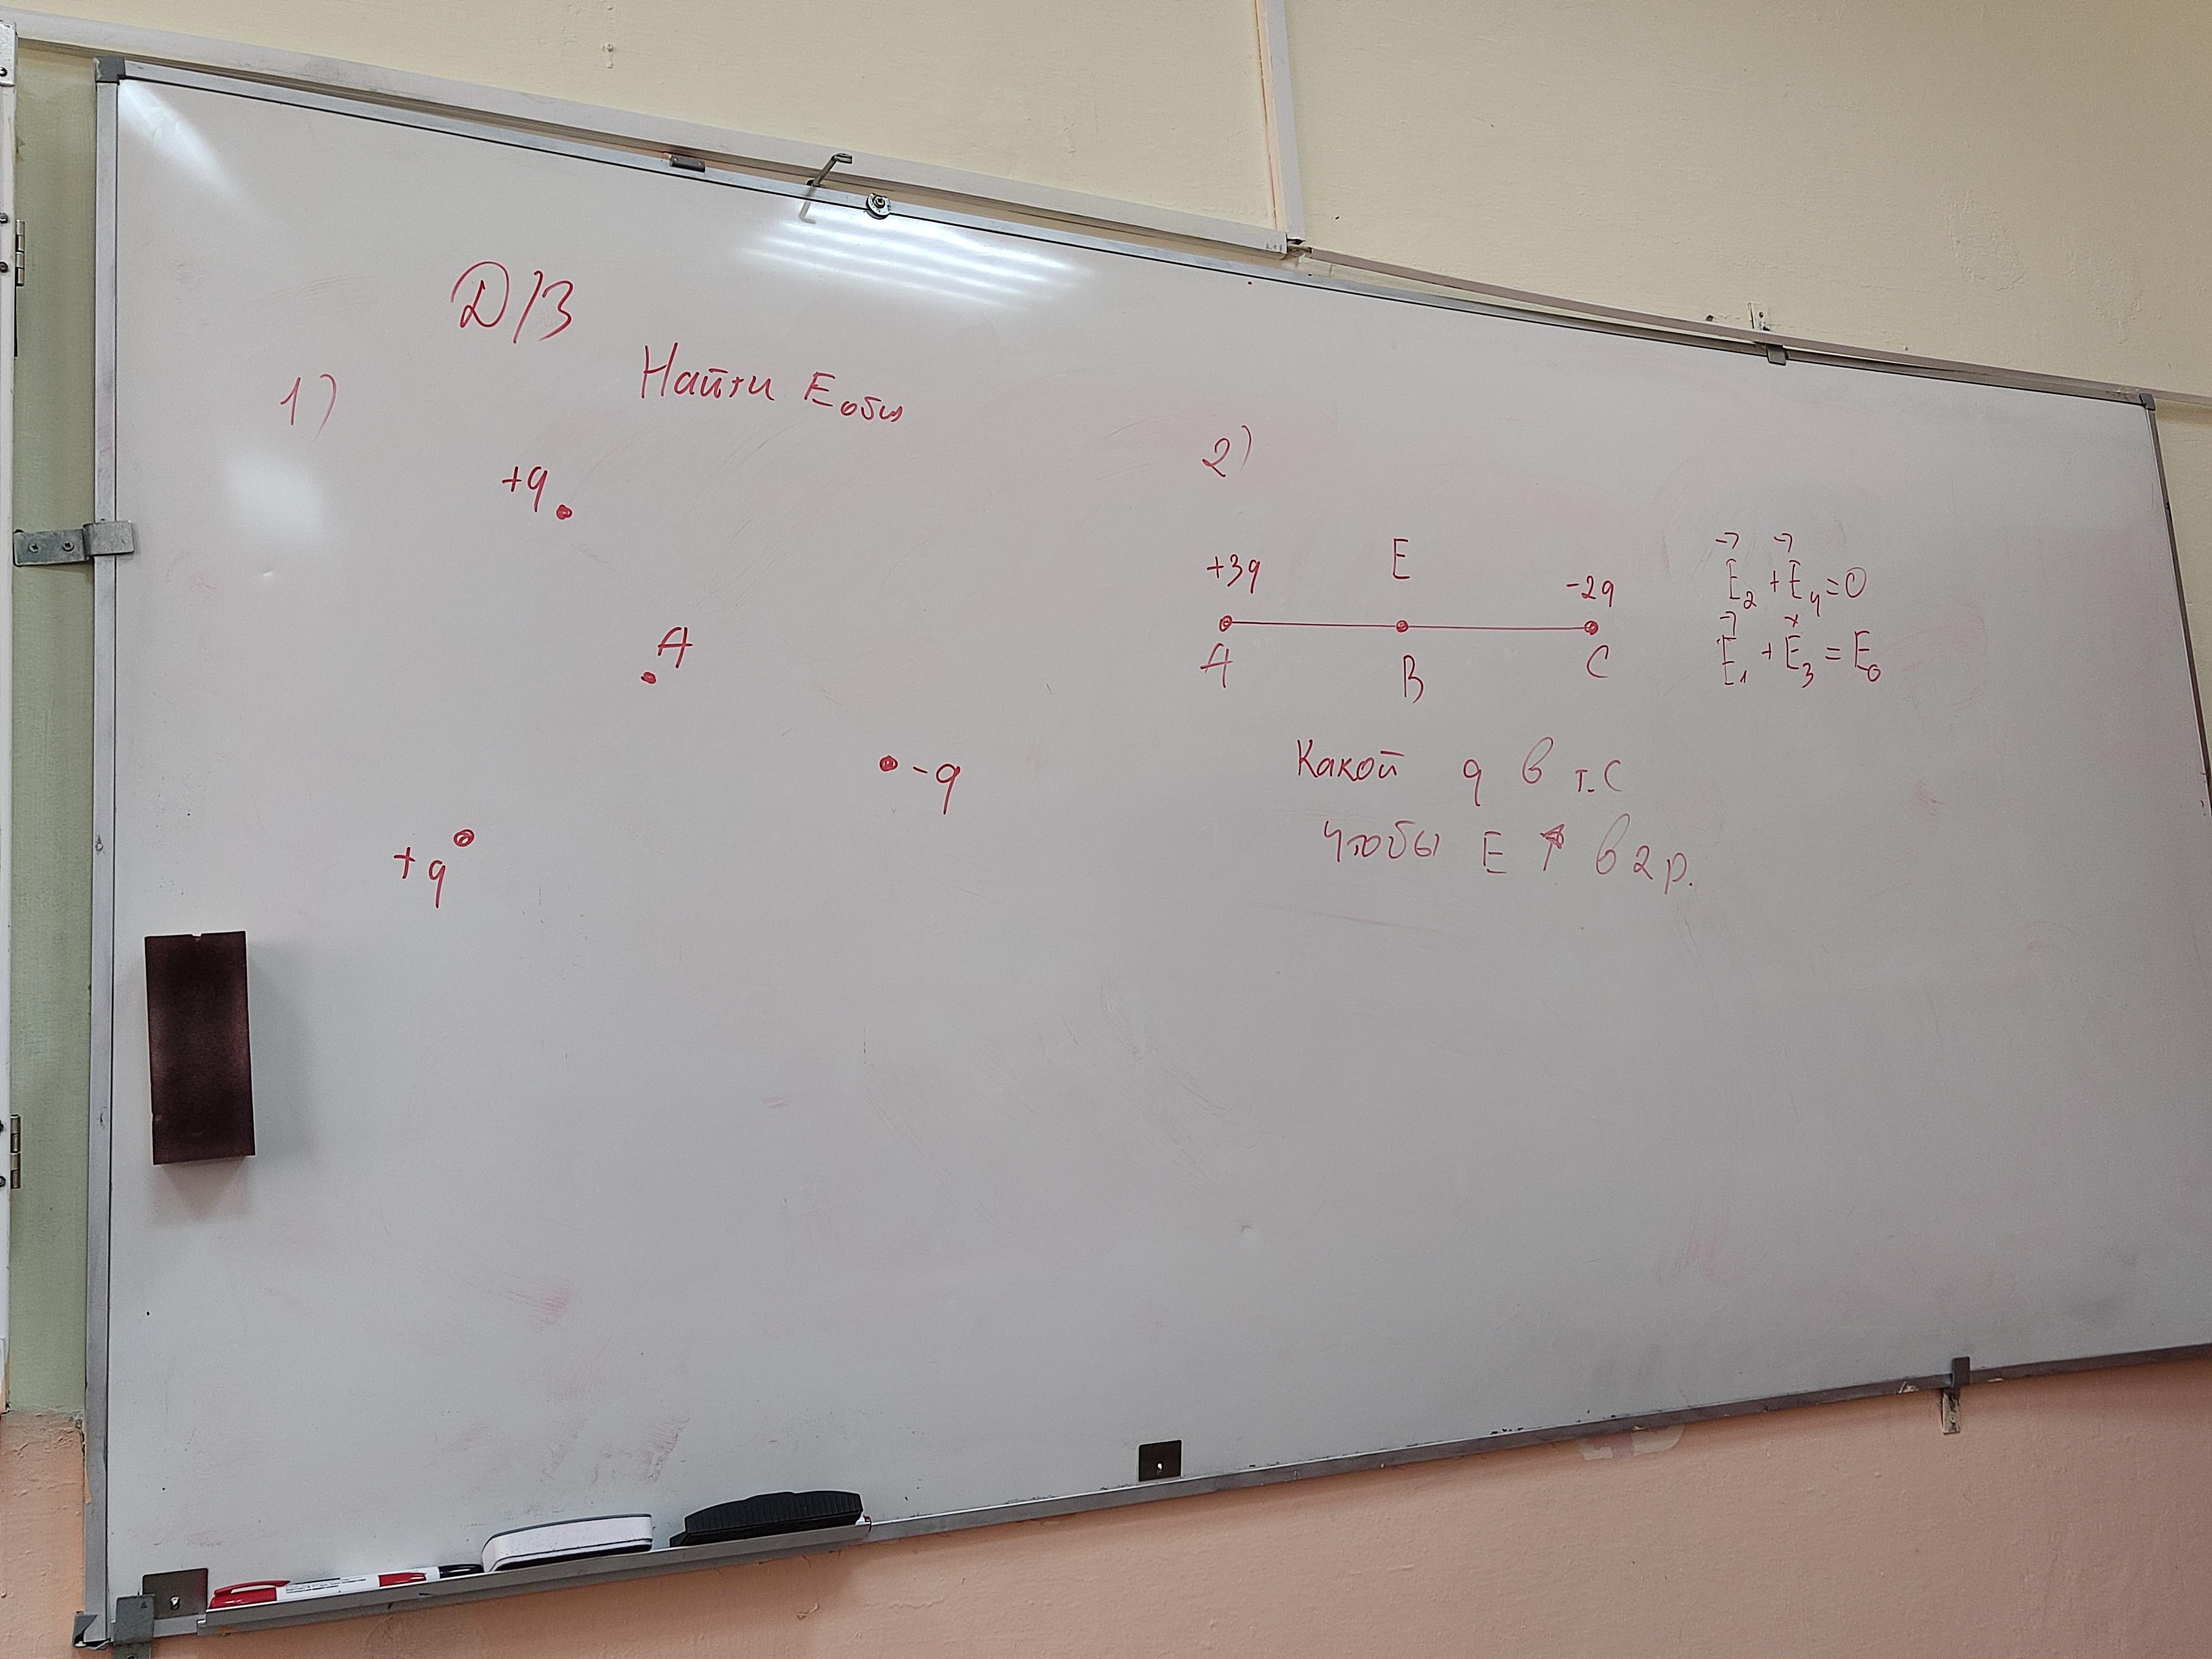 Д/З
Найти Eобщ
1)
+q
A
-q
+q
2)
+3q E -2q
A B C
E₂ + E₄ = 0
E₁ + E₃ = E₀
Какой q в т.С
чтобы E ↑ в 2 р.